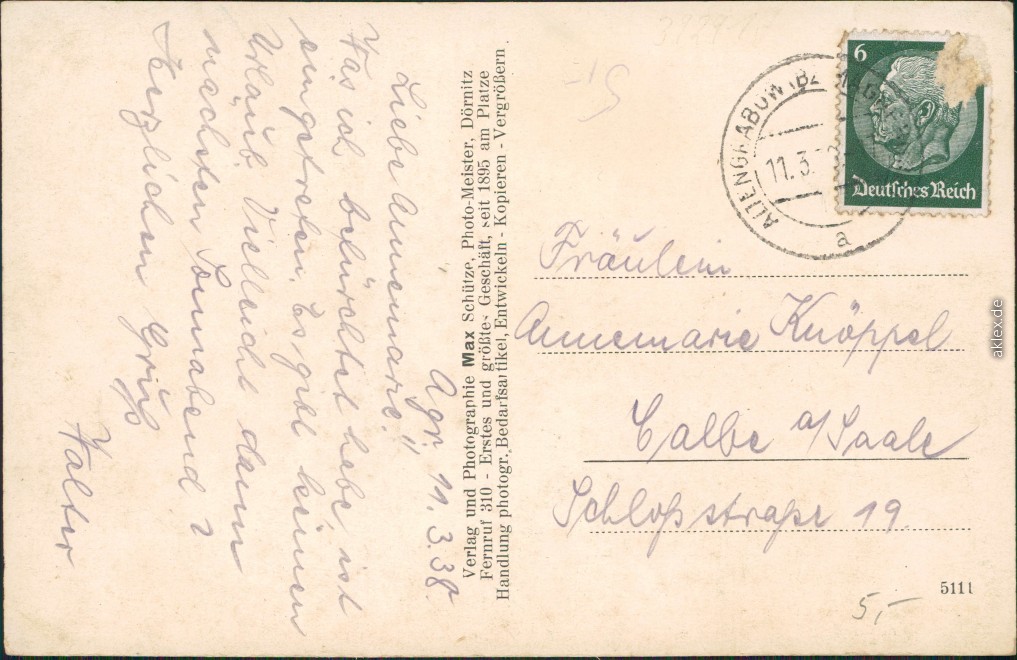 Agr. 11.3.38.
Liebe Annemarie!
Was ich befürchtet habe ist
eingetreten. Es gibt keinen
Urlaub. Vielleicht dann
nächsten Sonnabend?
Herzlichen Gruß
Walter
Verlag und Photographie Max Schütze, Photo-Meister, Dörnitz
Fernruf 310 - Erstes und größtes Geschäft, seit 1895 am Platze
Handlung photogr. Bedarfsartikel, Entwickeln - Kopieren - Vergrößern.
ALTENGRABOW (BZ. MAGDEBURG)
11.3.
a
6
Deutsches Reich
Fräulein
Annemarie Knöppel
Calbe a/Saale
Schloßstraße 19.
5111
5,-
aklex.de